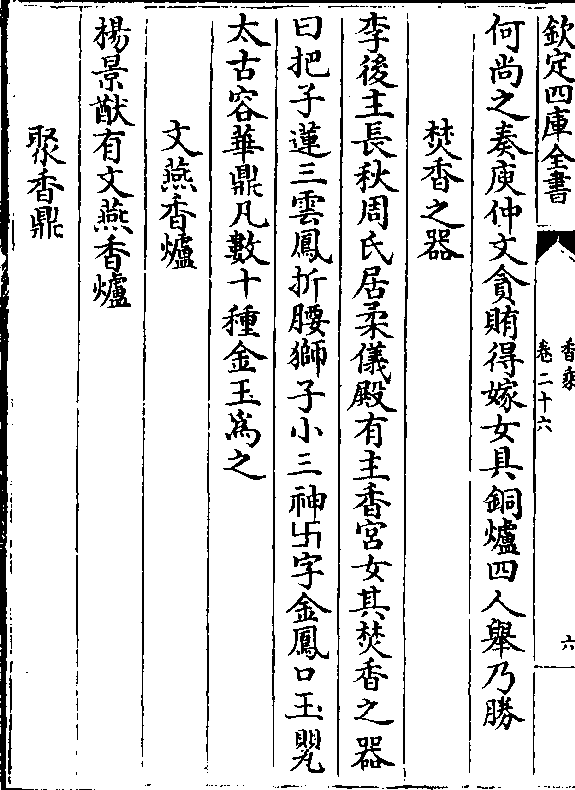 欽定四庫全書
香乘
卷二十六
六
何尚之奏庾仲文貪賄得嫁女具銅爐四人舉乃勝
焚香之器
李後主長秋周氏居柔儀殿有主香宮女其焚香之器
曰把子蓮三雲鳳折腰獅子小三神卍字金鳳口玉
太古容華鼎凡數十種金玉為之
文燕香爐
楊景猷有文燕香爐
聚香鼎